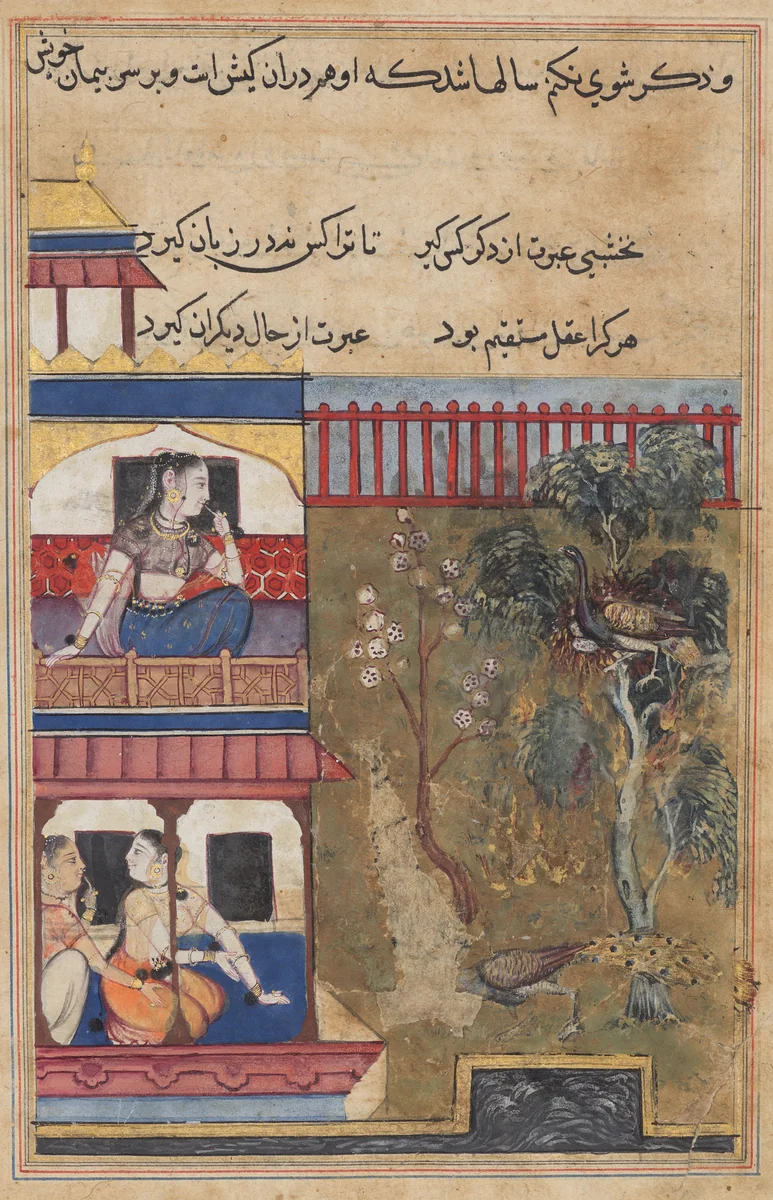 و ذکر شوی نکنم سالها شد که او هم دران کیش است و بر سر پیمان خویش
نخشبی عبرت از دکر کس کیر تا ترا کس نه در زبان کیرد
هر کرا عقل مستقیم بود عبرت از حال دیکران کیرد